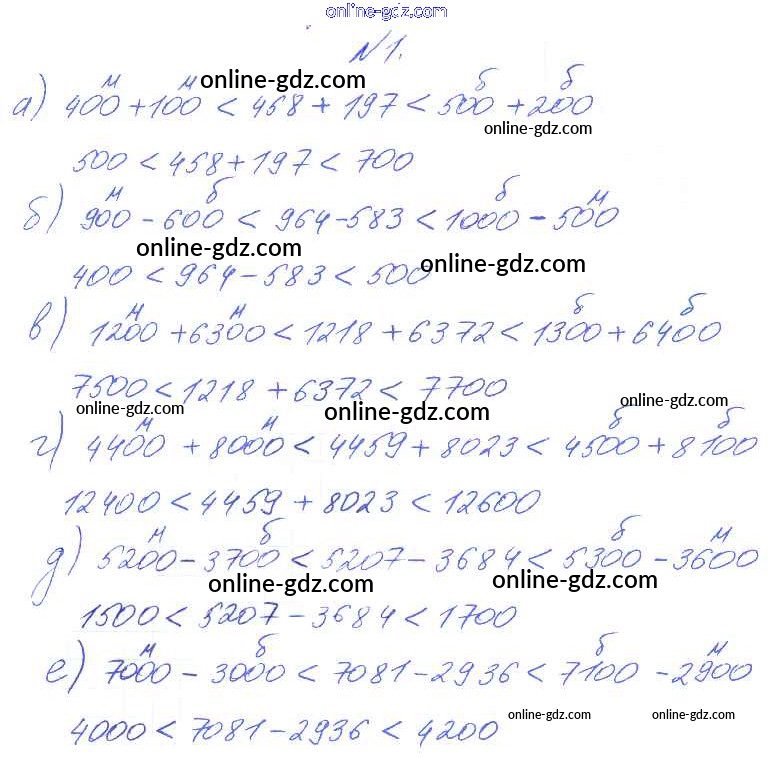 online-gdz.com
№1.
м м online-gdz.com б б
а) 400 + 100 < 458 + 197 < 500 + 200
online-gdz.com
500 < 458 + 197 < 700
м б б м
б) 900 - 600 < 964 - 583 < 1000 - 500
online-gdz.com online-gdz.com
400 < 964 - 583 < 500
м м б б
в) 1200 + 6300 < 1218 + 6372 < 1300 + 6400
7500 < 1218 + 6372 < 7700
online-gdz.com online-gdz.com online-gdz.com
м м б б
г) 4400 + 8000 < 4459 + 8023 < 4500 + 8100
12400 < 4459 + 8023 < 12600
м б б м
д) 5200 - 3700 < 5207 - 3684 < 5300 - 3600
online-gdz.com online-gdz.com
1500 < 5207 - 3684 < 1700
м б б м
е) 7000 - 3000 < 7081 - 2936 < 7100 - 2900
online-gdz.com online-gdz.com
4000 < 7081 - 2936 < 4200